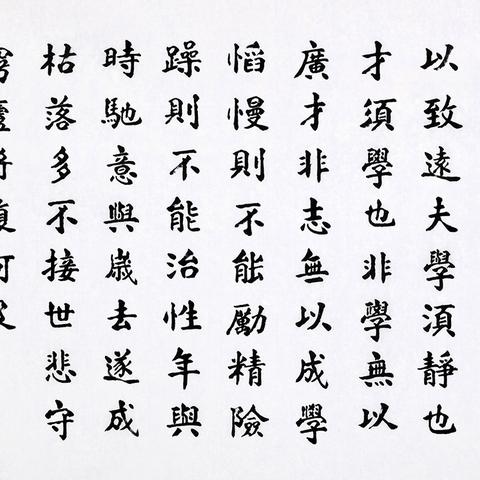 以致遠夫學須靜也
才須學也非學無以
廣才非志無以成學
慆慢則不能勵精險
躁則不能治性年與
時馳意與歲去遂成
枯落多不接世悲守